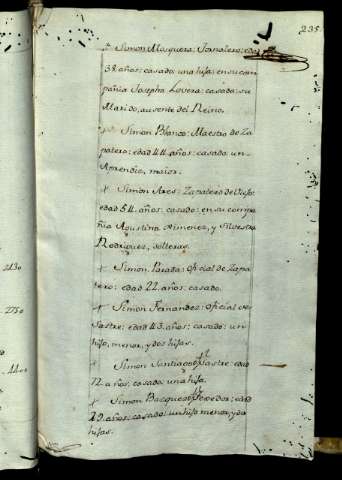 235
+ Simon Mosquera: Jornalero: edad
38. años: casado: una hija: en su com
pañia Josepha Lovera: casada: su
Marido, ausente del Reino.
Simon Blanco: Maestro de Za
patero: edad 44. años: casado: un
Aprendiz, maior.
+ Simon Ares: Zapatero de Viejo:
edad 54. años: casado: en su compa
ñia Agustina Ximenez, y Silvestra
Rodriguez, solteras.
+ Simon Parada: Oficial de Zapa
tero: edad 22. años: casado.
+ Simon Fernandez: Oficial de
Sastre: edad 43. años: casado: un
hijo, menor, y dos hijas.
+ Simon Santiago: Sastre: edad
72. años: casado: una hija.
+ Simon Bacques: Texedor: edad
29. años: casado: un hijo menor, y dos
hijas.
2130
2750